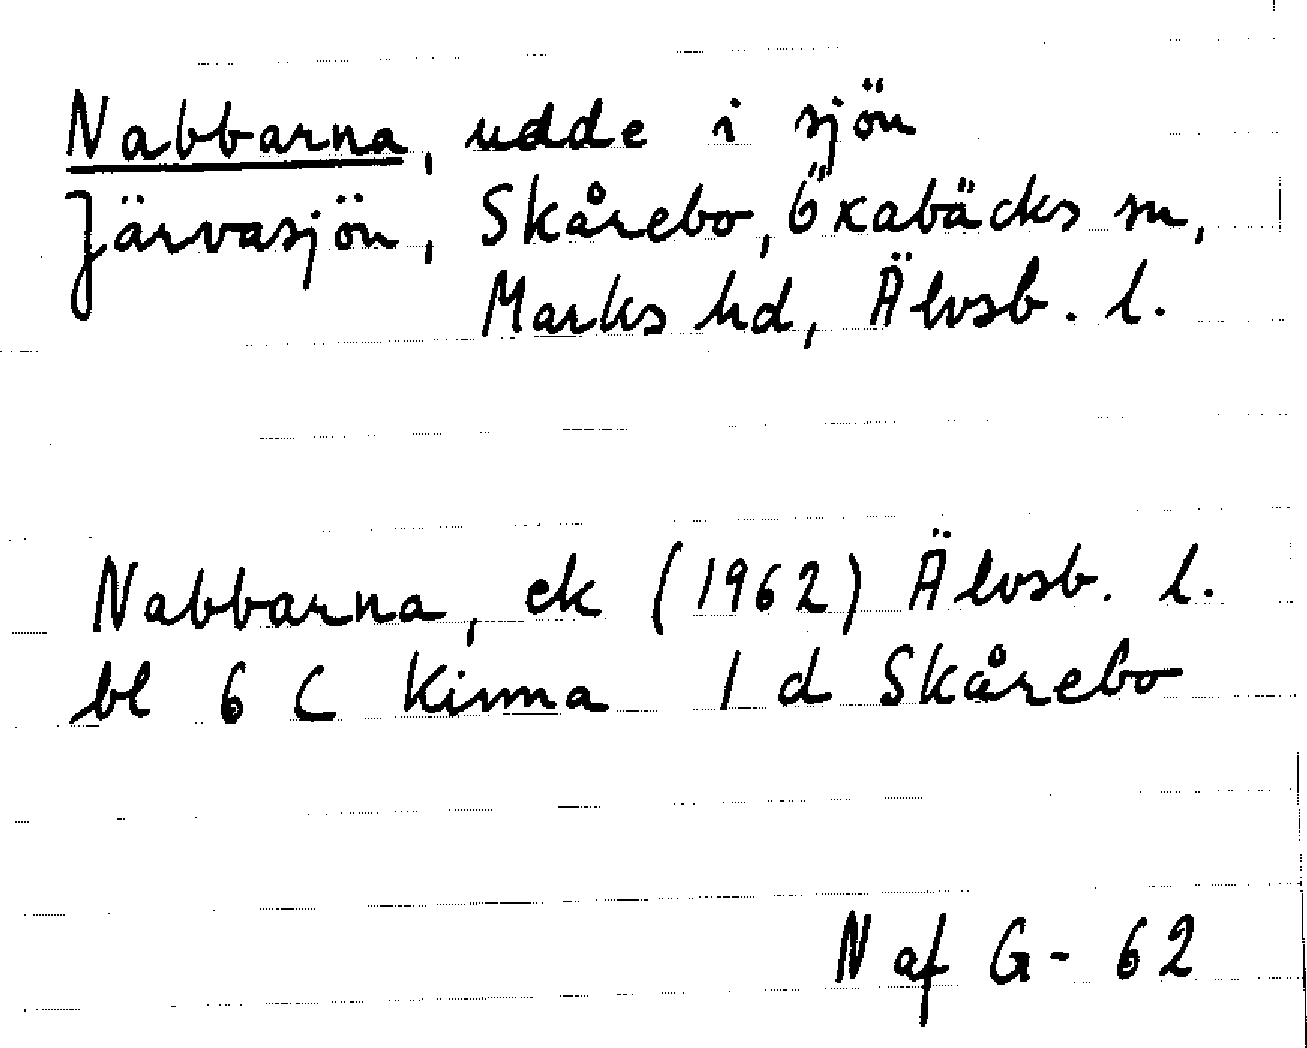 Nabbarna, udde i sjön
Järvasjön, Skårebo, Öxabäcks sn,
Marks hd, Älvsb. l.
Nabbarna, ek (1962) Älvsb. l.
bl 6 C Kinna 1 d Skårebo
N af G- 62